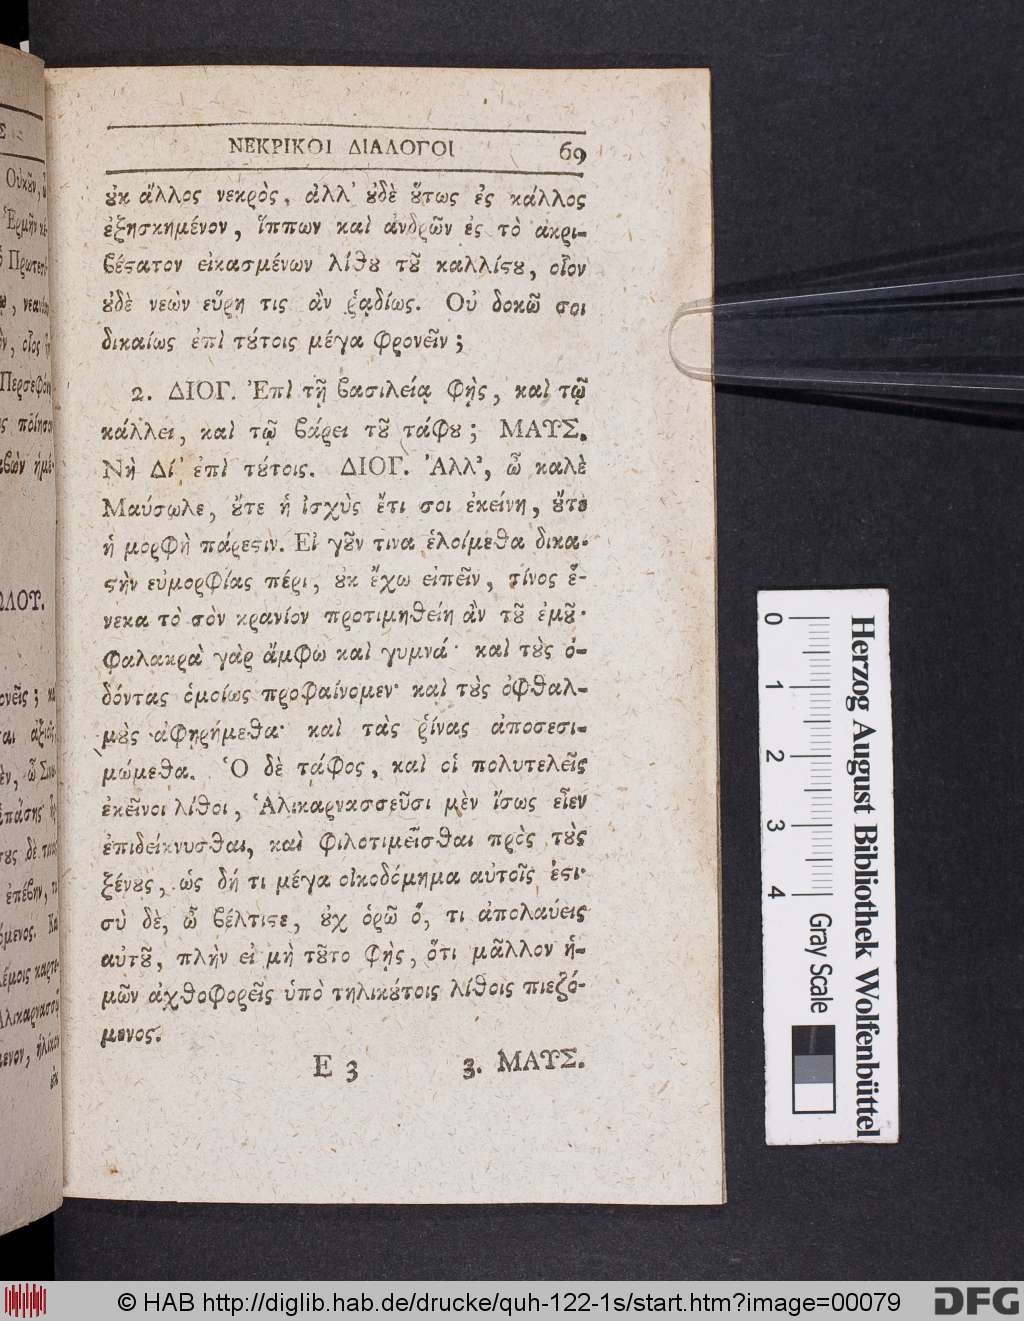 ΝΕΚΡΙΚΟΙ ΔΙΑΛΟΓΟΙ 69
ȣ̓κ ἄλλος νεκρὸς, ἀλλ' ȣ̓δὲ ȣ̔́τως ἐς κάλλος
ἐξησκημένον, ἵππων καὶ ἀνδρῶν ἐς τὸ ἀκρι-
βέϛατον εἰκασμένων λίθȣ τȣ͂ καλλίϛȣ, οἷον
ȣ̓δὲ νεὼν εὕρῃ τις ἂν ῥᾳδίως. Οὐ δοκῶ σοι
δικαίως ἐπὶ τȣ́τοις μέγα φρονεῖν;
2. ΔΙΟΓ. Ἐπὶ τῇ βασιλείᾳ φῂς, καὶ τῷ
κάλλει, καὶ τῷ βάρει τȣ͂ τάφȣ; ΜΑΥΣ.
Νὴ Δί' ἐπὶ τȣ́τοις. ΔΙΟΓ. Ἀλλ', ὦ καλὲ
Μαύσωλε, ȣ̓́τε ἡ ἰσχὺς ἔτι σοι ἐκείνη, ȣ̓́τε
ἡ μορφὴ πάρεϛιν. Εἰ γȣ͂ν τινα ἑλοίμεθα δικα-
ϛὴν εὐμορφίας πέρι, ȣ̓κ ἔχω εἰπεῖν, τίνος ἕ-
νεκα τὸ σὸν κρανίον προτιμηθείη ἂν τȣ͂ ἐμȣ͂·
φαλακρὰ γὰρ ἄμφω καὶ γυμνά· καὶ τȣ̀ς ὀ-
δόντας ὁμοίως προφαίνομεν· καὶ τȣ̀ς ὀφθαλ-
μȣ̀ς ἀφῃρήμεθα· καὶ τὰς ῥίνας ἀποσεσι-
μώμεθα. Ὁ δὲ τάφος, καὶ οἱ πολυτελεῖς
ἐκεῖνοι λίθοι, Ἁλικαρνασσεῦσι μὲν ἴσως εἶεν
ἐπιδείκνυσθαι, καὶ φιλοτιμεῖσθαι πρὸς τȣ̀ς
ξένȣς, ὡς δή τι μέγα οἰκοδόμημα αὐτοῖς ἐϛι·
σὺ δὲ, ὦ βέλτιϛε, ȣ̓χ ὁρῶ ὅ, τι ἀπολαύεις
αὐτȣ͂, πλὴν εἰ μὴ τȣ͂το φῂς, ὅτι μᾶλλον ἡ-
μῶν ἀχθοφορεῖς ὑπὸ τηλικȣ́τοις λίθοις πιεζό-
μενος.
E 3 3. ΜΑΥΣ.
Οὐκȣ͂ν, ὦ
Περσεφόν
ΩΛΟΥ.
0 1 2 3 4
Gray Scale
Herzog August Bibliothek Wolfenbüttel
© HAB http://diglib.hab.de/drucke/quh-122-1s/start.htm?image=00079
DFG